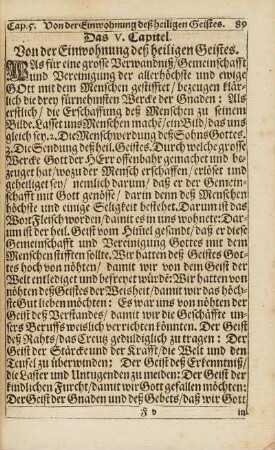 Cap. 5. Von der Einwohnung deß heiligen Geistes. 89
Das V. Capitel.
Von der Einwohnung deß heiligen Geistes.
WAs für eine grosse Verwandniß/ Gemeinschafft
und Vereinigung der allerhöchste und ewige
GOtt mit dem Menschen gestifftet/ bezeugen klär-
lich die drey fürnehmsten Wercke der Gnaden: Als
erstlich/ die Erschaffung deß Menschen zu seinem
Bilde. Lasset uns Menschen machē/ ein Bild/ das uns
gleich sey. 2. Die Menschwerdung deß Sohns Gottes.
3. Die Sendung deß heil. Geistes. Durch welche grosse
Wercke Gott der HErr offenbahr gemachet und be-
zeuget hat/ wozu der Mensch erschaffen/ erlöset und
geheiliget sey/ nemlich darum/ daß er der Gemein-
schafft mit Gott geniösse/ darin denn deß Menschen
höchste und einige Seligkeit bestehet. Darum ist das
Wort Fleisch worden/ damit es in uns wohnete: Dar-
um ist der heil. Geist vom Him̃el gesandt/ daß er diese
Gemeinschafft und Vereinigung Gottes mit dem
Menschen stifften sollte. Wir hatten deß Geistes Got-
tes hoch von nöhten/ damit wir von dem Geist der
Welt entlediget und befreyet würdē: Wir hatten von
nöhten deß Geistes der Weisheit/ damit wir das höch-
ste Gut lieben möchten: Es war uns von nöhten der
Geist deß Verstandes/ damit wir die Geschäffte un-
sers Beruffs weislich verrichten könnten. Der Geist
deß Rahts/ das Creutz gedultiglich zu tragen: Der
Geist der Stärcke und der Krafft/ die Welt und den
Teufel zu überwinden: Der Geist deß Erkenntniß/
die Laster und Untugenden zu meiden: Der Geist der
kindlichen Furcht/ damit wir Gott gefallen möchten:
Der Geist der Gnaden und deß Gebets/ daß wir Gott
F v in